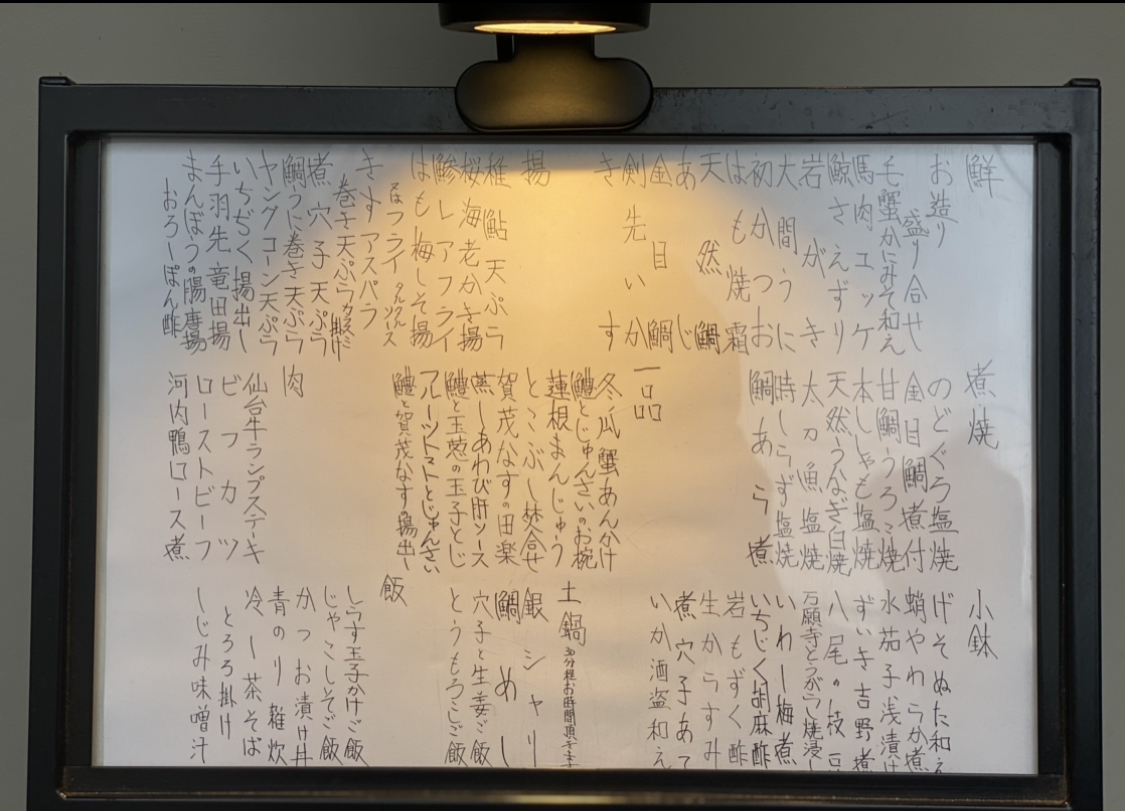 鮮
お造り
盛り合せ
毛蟹かにみそ和え
馬肉ユッケ
鯨さえずり
岩がき
大間うに
初かつお
はも焼霜
天然鯛
あじ
金目鯛
剣先いか
きす
揚
稚鮎天ぷら
桜海老かき揚
鯵レアフライ
はも梅しそ揚
フライタルタルソース
きすアスパラ
巻き天ぷらカラスミ掛け
煮穴子天ぷら
鯛うに巻き天ぷら
ヤングコーン天ぷら
いちぢく揚出し
手羽先竜田揚
まんぼうの腸唐揚
おろしぽん酢
煮焼
のどぐろ塩焼
金目鯛煮付
甘鯛うろこ焼
本ししゃも塩焼
天然うなぎ白焼
太刀魚塩焼
時しらず塩焼
鯛あら煮
一品
冬瓜蟹あんかけ
鱧とじゅんさいのお椀
蓮根まんじゅう
とこぶし焚合せ
賀茂なすの田楽
蒸しあわび肝ソース
鱧と玉葱の玉子とじ
フルーツトマトとじゅんさい
鱧と賀茂なすの揚出し
肉
仙台牛ランプステーキ
ビフカツ
ローストビーフ
河内鴨ロース煮
小鉢
げそぬた和え
蛸やわらか煮
水茄子浅漬け
ずいき吉野煮
八尾の枝豆
万願寺とうがらし焼浸し
いわし梅煮
いちじく胡麻酢
岩もずく酢
生からすみ
煮穴子あて
いか酒盗和え
土鍋
30分程お時間頂きます
銀シャリ
鯛めし
穴子と生姜ご飯
とうもろこしご飯
飯
しらす玉子かけご飯
じゃこしそご飯
かつお漬け丼
青のり雑炊
冷し茶そば
とろろ掛け
しじみ味噌汁